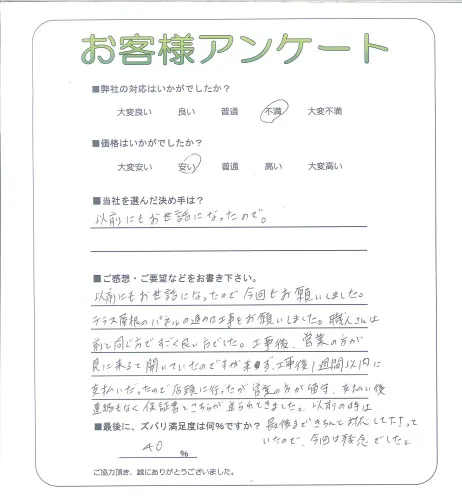 お客様アンケート
■弊社の対応はいかがでしたか？
大変良い 良い 普通 不満 大変不満
■価格はいかがでしたか？
大変安い 安い 普通 高い 大変高い
■当社を選んだ決め手は？
以前にもお世話になったので。
■ご感想・ご要望などをお書き下さい。
以前にもお世話になったので今回もお願いしました。
テラス屋根のパネルの工事をお願いしました。職人さんは
前と同じ方ですごく良い方でした。工事後、営業の方が
見に来ると聞いていたのですが来ず、工事後1週間以内に
支払いだったので店頭に行ったが営業の方が留守、支払い後
連絡もなく保証書とこちらが送られてきました。以前の時は
■最後に、ズバリ満足度は何%ですか？
最後まできちんと対応して下さって
いたので、今回は残念でした。
40 %
ご協力頂き、誠にありがとうございました。